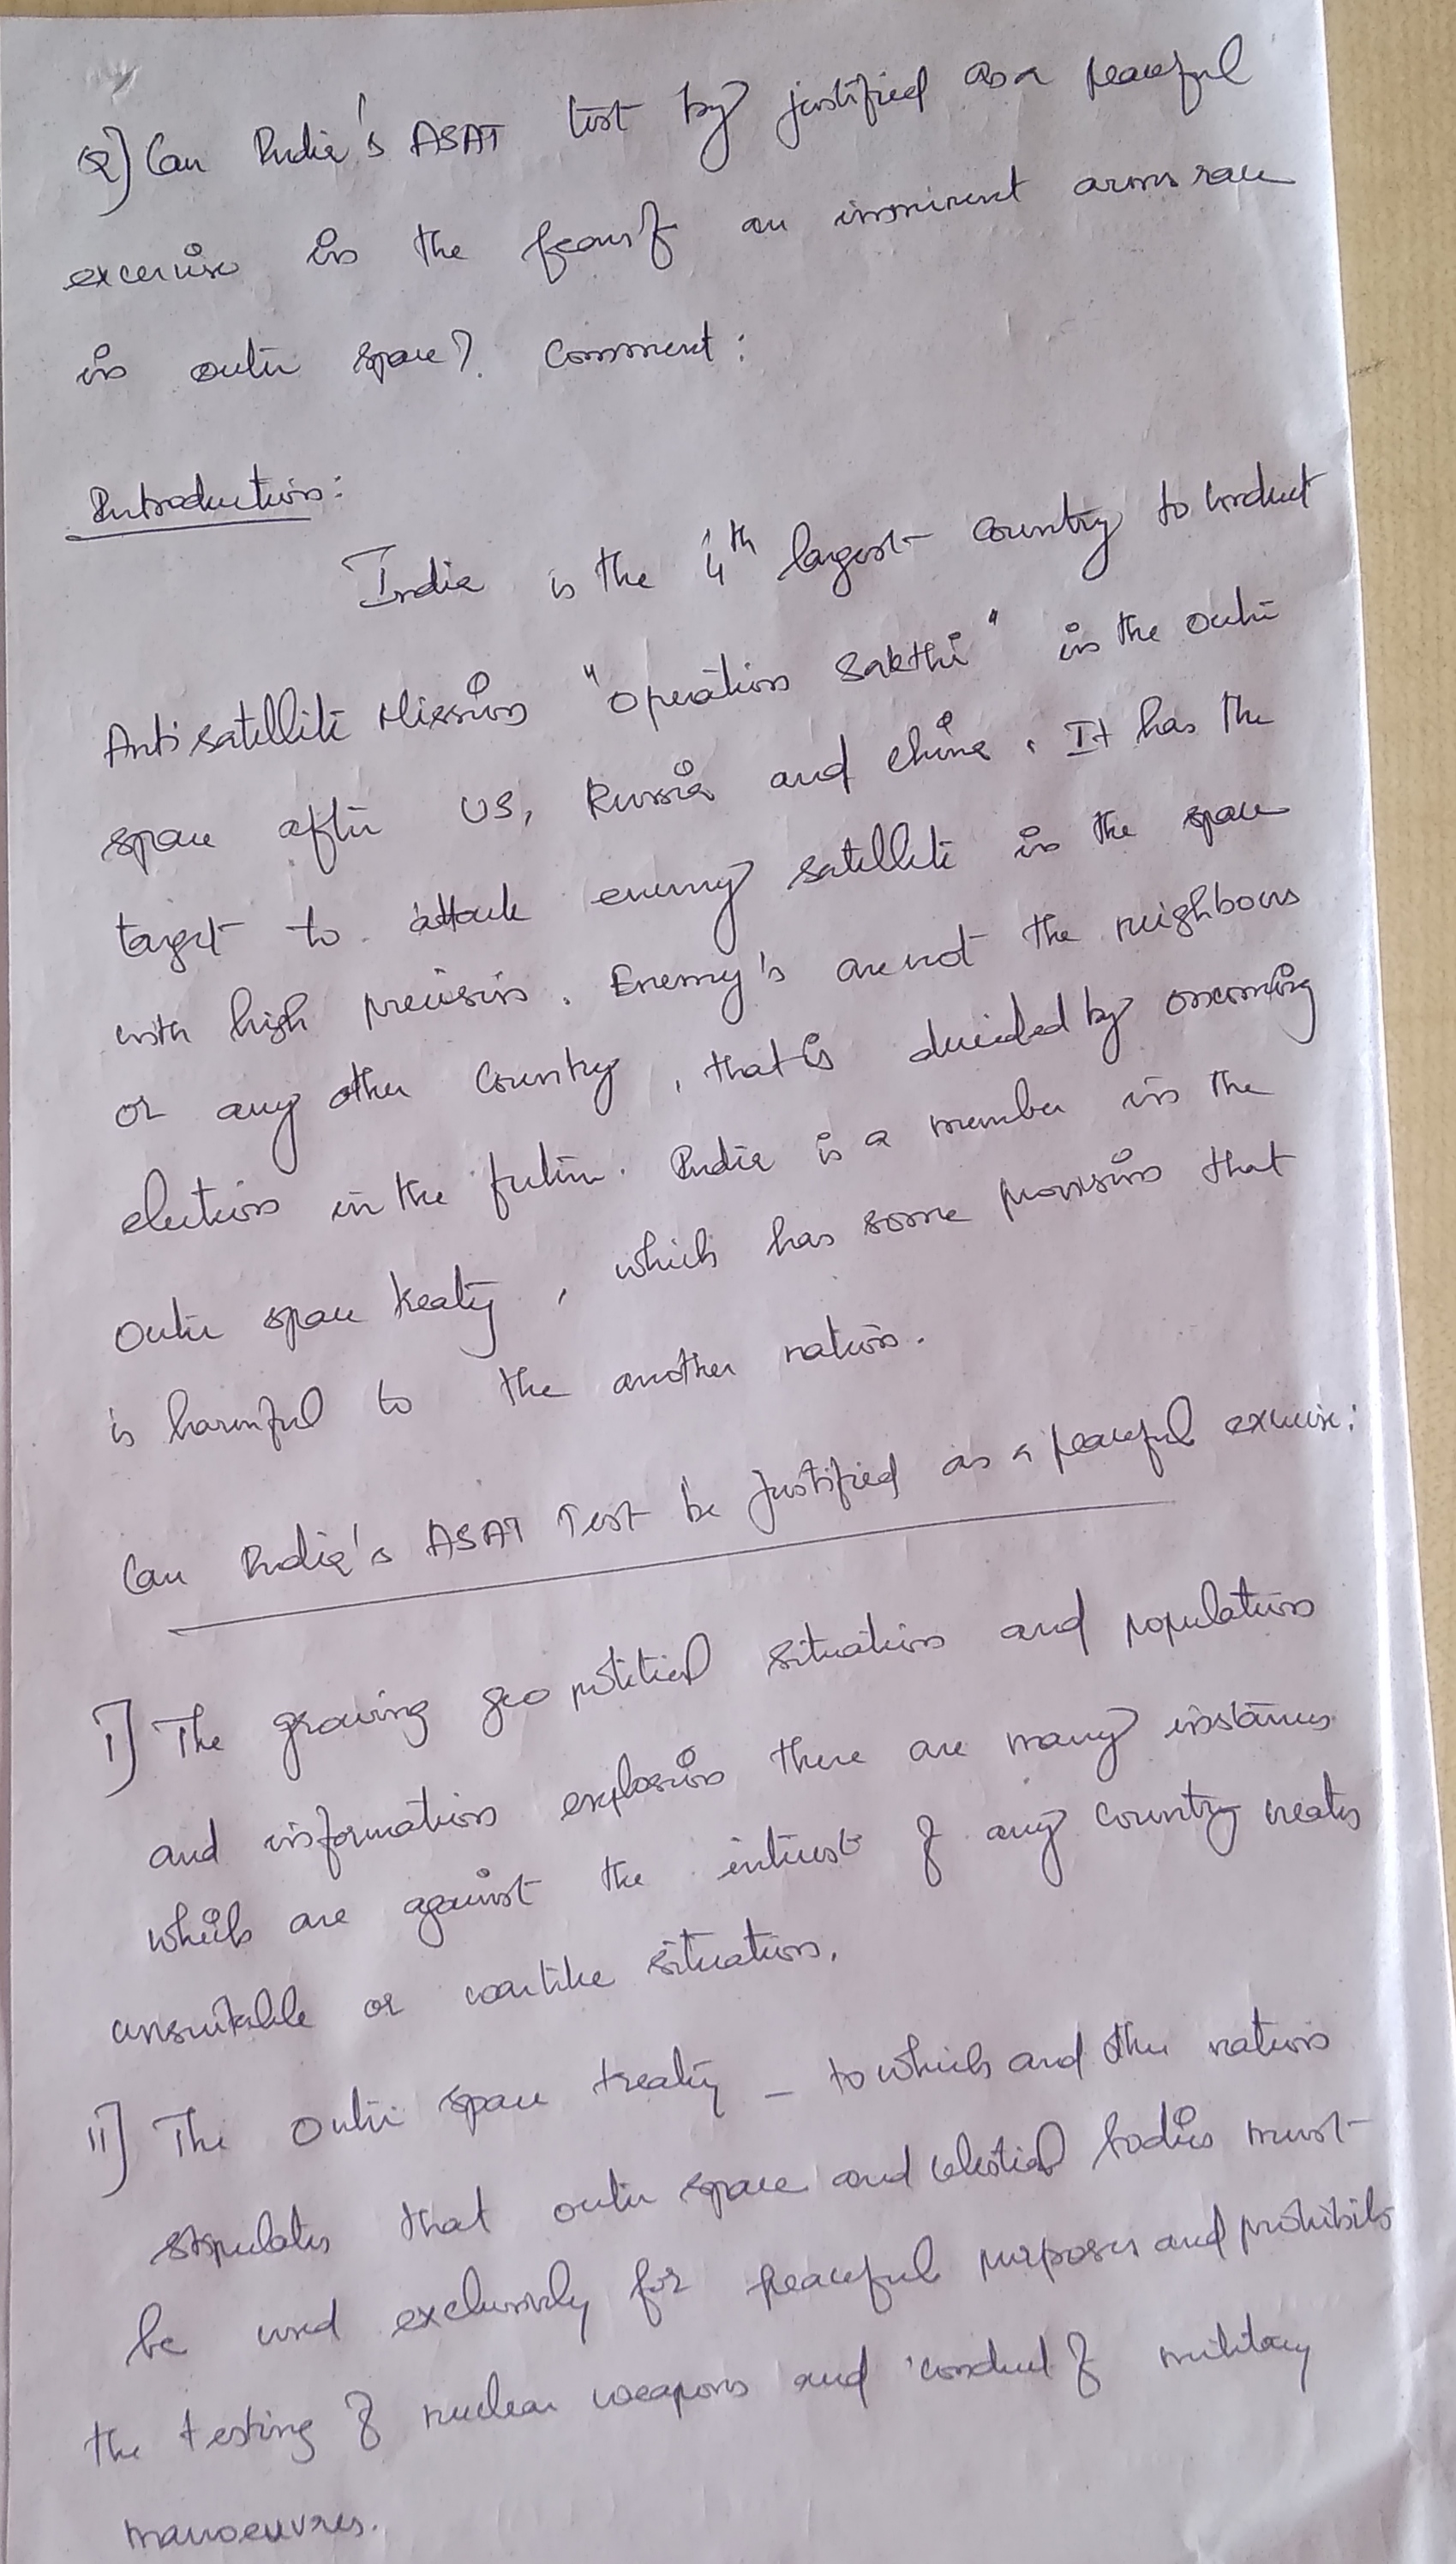 Q) Can India's ASAT test by justified as a peaceful
excercise in the fear of an imminent arms race
in outer space? Comment:
Introduction:
India is the 4th largest country to conduct
Antisatellite Mission "Operation Sakthi" in the outer
space after US, Russia and China. It has the
target to attack enemy satellite in the space
with high precision. Enemy's are not the neighbours
or any other country, that is decided by oncoming
elections in the future. India is a member in the
Outer space treaty, which has some provisions that
is harmful to the another nation.
Can India's ASAT Test be Justified as a peaceful exercise:
i] The growing geo political situation and population
and information explosion there are many instances
which are against the interest of any country creates
unsuitable or warlike situation.
ii] The Outer space treaty – to which and other nations
stipulates that outer space and celestial bodies must
be used exclusively for peaceful purposes and prohibits
the testing of nuclear weapons and conduct of military
manoeuvres.